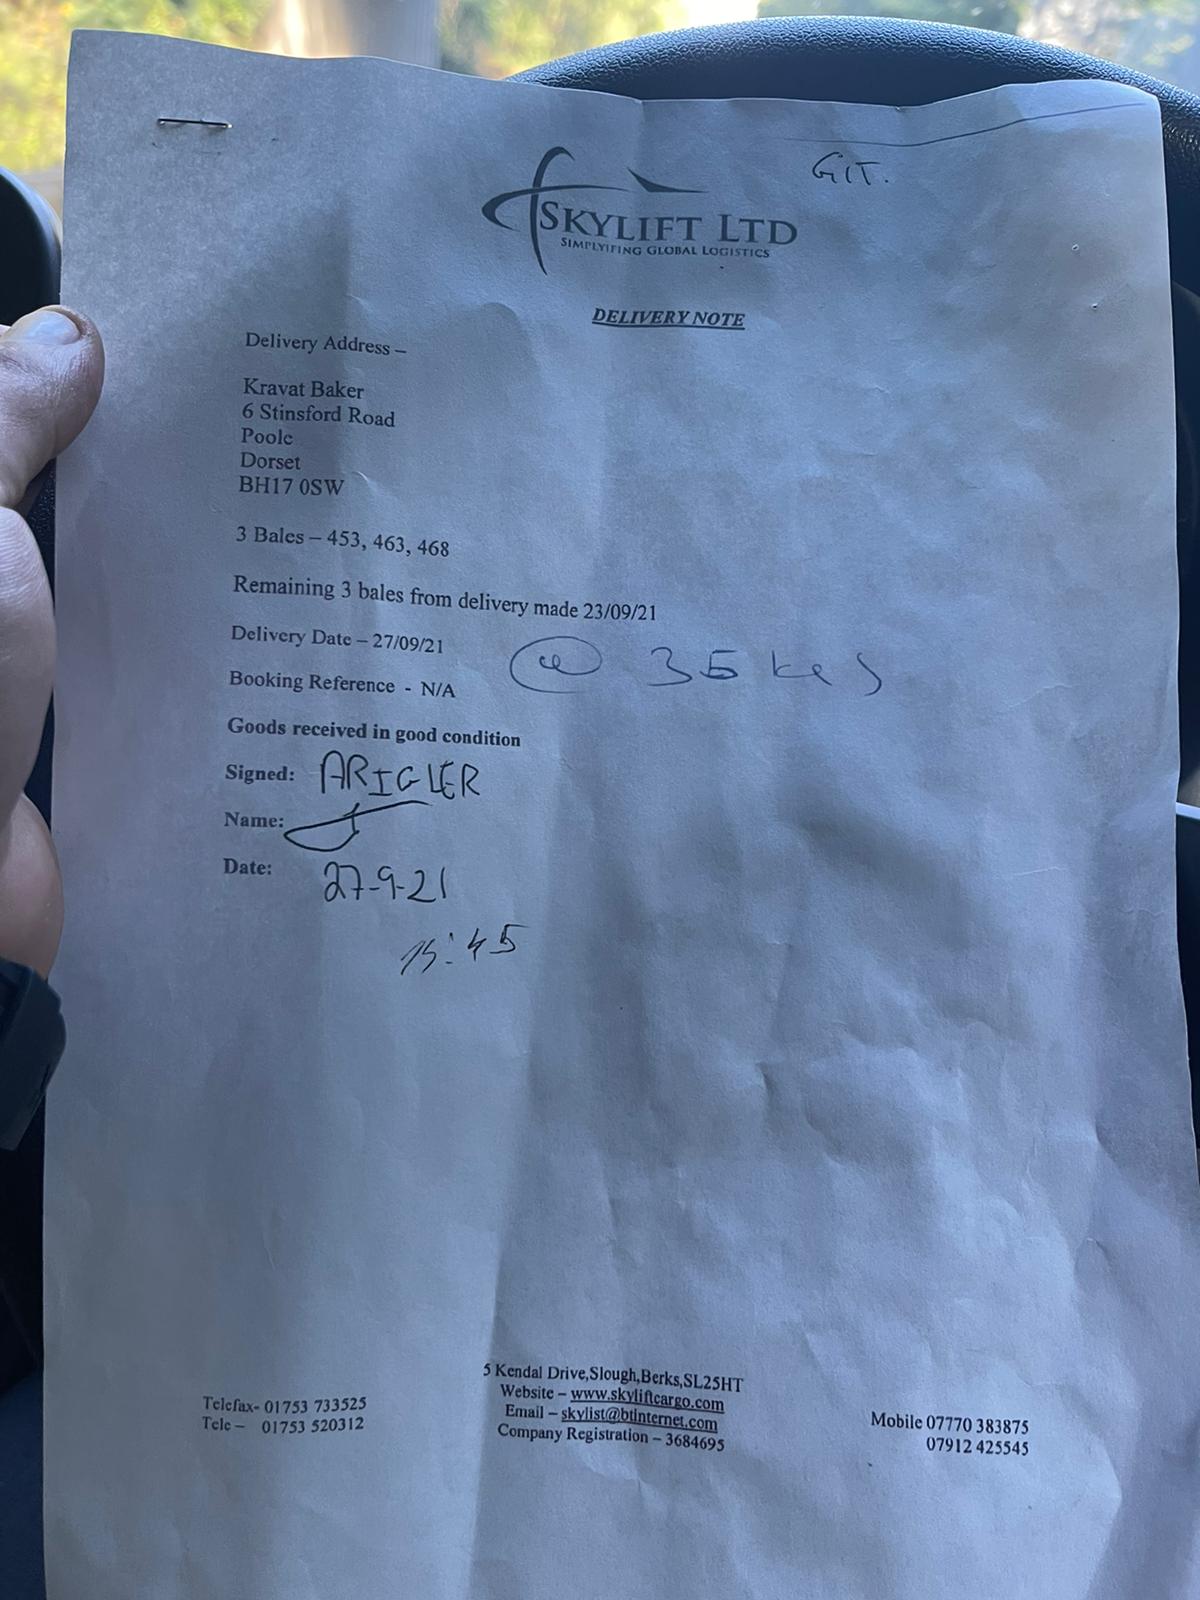 GIT.
SKYLIFT LTD
SIMPLYIFING GLOBAL LOGISTICS
DELIVERY NOTE
Delivery Address –
Kravat Baker
6 Stinsford Road
Poole
Dorset
BH17 0SW
3 Bales – 453, 463, 468
Remaining 3 bales from delivery made 23/09/21
Delivery Date – 27/09/21
@ 35 kgs
Booking Reference - N/A
Goods received in good condition
Signed: ARIGLER
Name:
Date: 27-9-21
15:45
5 Kendal Drive,Slough,Berks,SL25HT
Website – www.skyliftcargo.com
Email – skylist@btinternet.com
Company Registration – 3684695
Telefax- 01753 733525
Tele – 01753 520312
Mobile 07770 383875
07912 425545